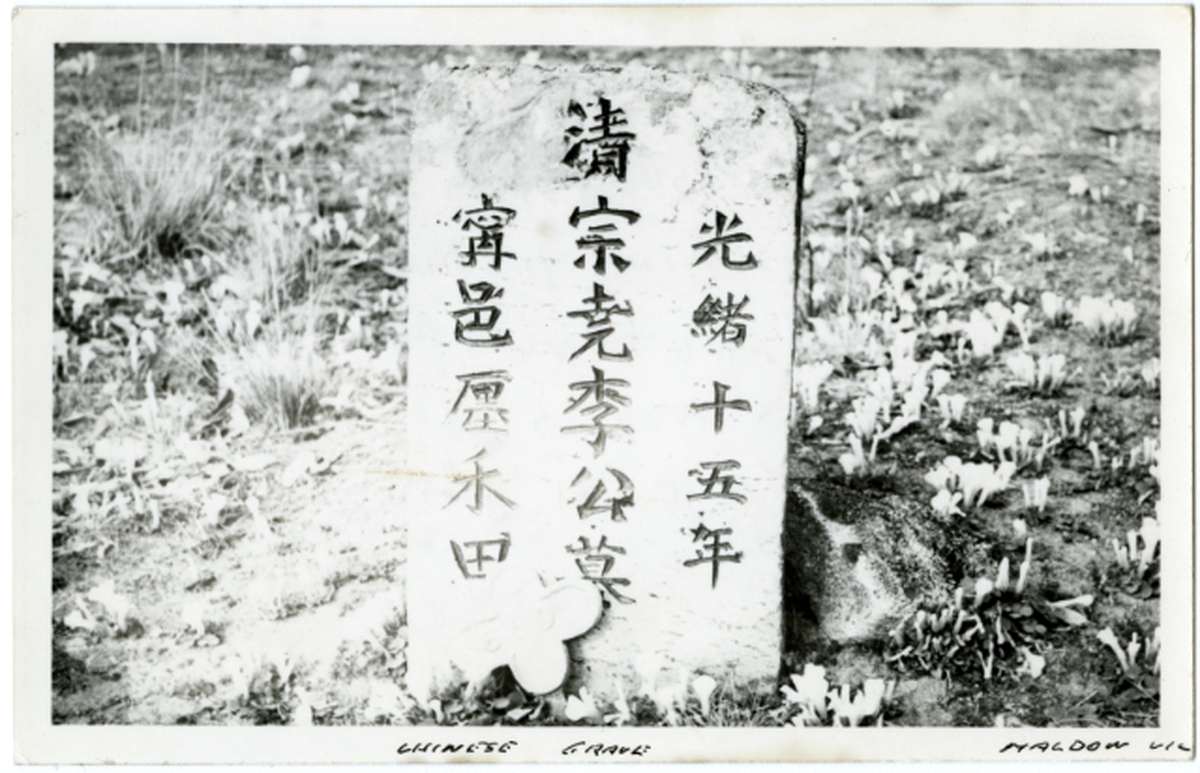 光緒十五年
清宗尭李公莫
寗邑厘禾田
CHINESE GRAVE MALDON VIC